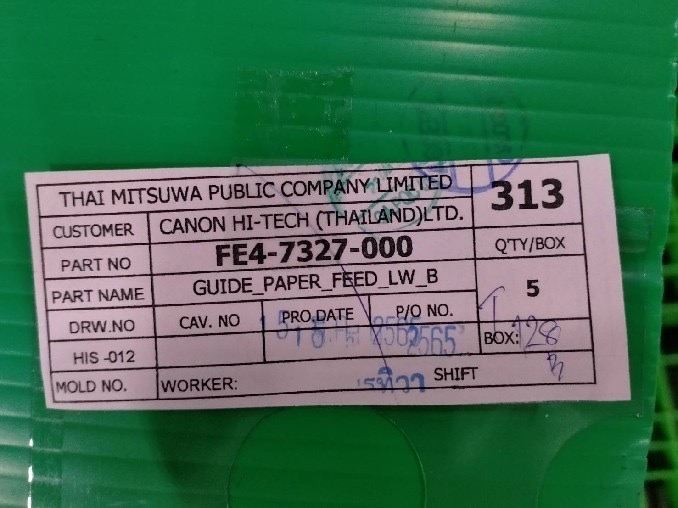 THAI MITSUWA PUBLIC COMPANY LIMITED
313
CUSTOMER CANON HI-TECH (THAILAND)LTD.
PART NO FE4-7327-000
Q'TY/BOX
PART NAME GUIDE_PAPER_FEED_LW_B
5
DRW.NO CAV. NO PRO.DATE P/O NO.
2565
HIS -012
BOX: 128
MOLD NO. WORKER: SHIFT